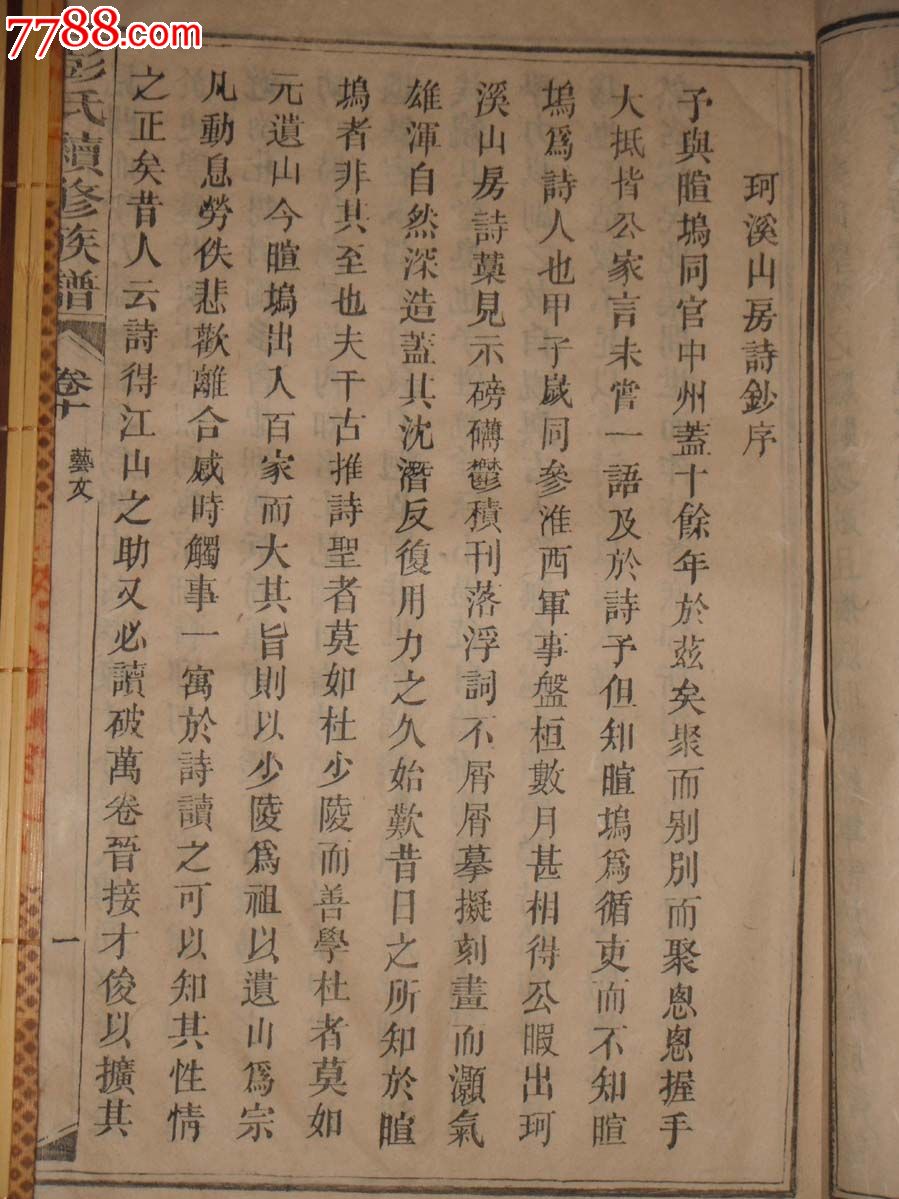 7788.com
珂溪山房詩鈔序
予與暄塢同官中州蓋十餘年於茲矣聚而別別而聚悤悤握手
大抵皆公家言未嘗一語及於詩予但知暄塢爲循吏而不知暄
塢爲詩人也甲子歲同參淮西軍事盤桓數月甚相得公暇出珂
溪山房詩藁見示磅礴鬱積刊落浮詞不屑屑摹擬刻畫而灝氣
雄渾自然深造蓋其沈潛反復用力之久始歎昔日之所知於暄
塢者非其至也夫千古推詩聖者莫如杜少陵而善學杜者莫如
元遺山今暄塢出入百家而大其旨則以少陵爲祖以遺山爲宗
凡動息勞佚悲歡離合感時觸事一寓於詩讀之可以知其性情
之正矣昔人云詩得江山之助又必讀破萬卷晉接才俊以擴其
彭氏續修族譜
卷十
藝文
一